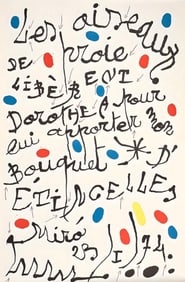 Les oiseaux
DE proie
LIBÈRENT
DOROTHEA pour
lui apporter mon
Bouquet D'
ÉTINCELLES
Miró 23 I 74.